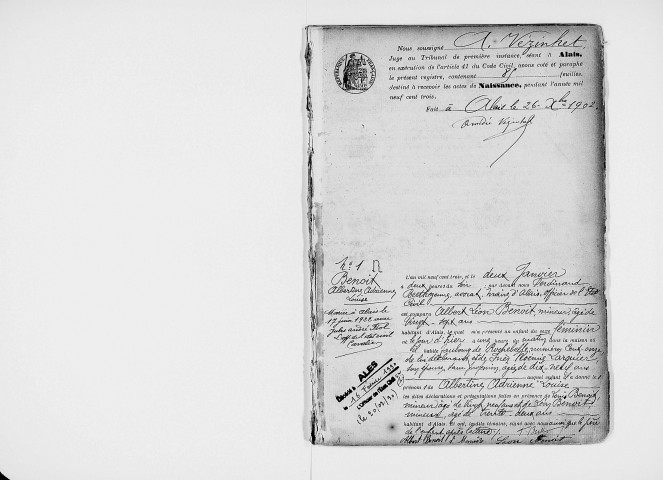 Nous, soussigné A. Vézinhet
Juge au Tribunal de première instance, séant à Alais,
en exécution de l'article 41 du Code Civil, avons coté et paraphé
le présent registre, contenant 85 feuilles,
destiné à recevoir les actes de Naissance, pendant l'année mil
neuf cent trois.
Fait à Alais le 26 Xbre 1902
Amédée Vézinhet
N° 1
Benoit
Albertine Adrienne
Louise
Mariée à Alais le
17 juin 1922 avec
Jules André
L'officier de l'état civil
L'an mil neuf cent trois, et le deux Janvier
à deux heures du soir, par devant nous Ferdinand
avocat, Maire d'Alais, officier de l'Etat
Civil
est comparu Albert Léon Benoit, mineur, âgé de
vingt sept ans
habitant d'Alais, lequel m'a présenté un enfant du sexe féminin
né le jour d'hier à une heure du matin dans la maison où
il habite faubourg de Rochebelle, numéro cent onze
de lui déclarant et de Inès Noémie Larguier
son épouse, sans profession, âgée de dix neuf ans
auquel enfant il a donné le
prénoms d' Albertine Adrienne Louise
les dites déclarations et présentations faites en présence de Louis Benoit
mineur, âgé de vingt neuf ans et de Léon Benoit
mineur, âgé de trente deux ans
habitant d'Alais. Et ont, lesdits témoins, signé avec nous ainsi que le père
de l'enfant après lecture
Albert Benoit Léon Benoit
Décédée à ALES
le 16 Février
L'Officier de l'Etat Civil